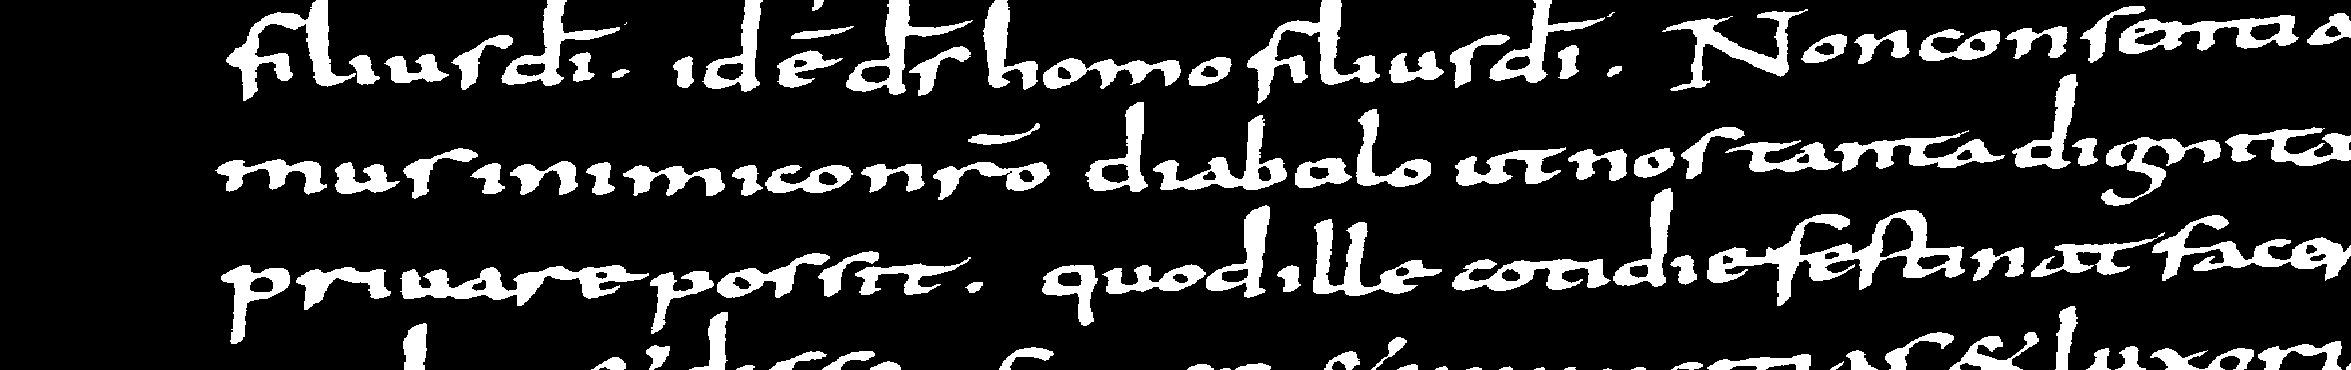 filius dī. idē dr̄ homo filius dī. Non consentia
mus inimico nr̄o diabolo ut nos tanta dignita
priuare possit. quod ille cotidie festinat facer
& luxori